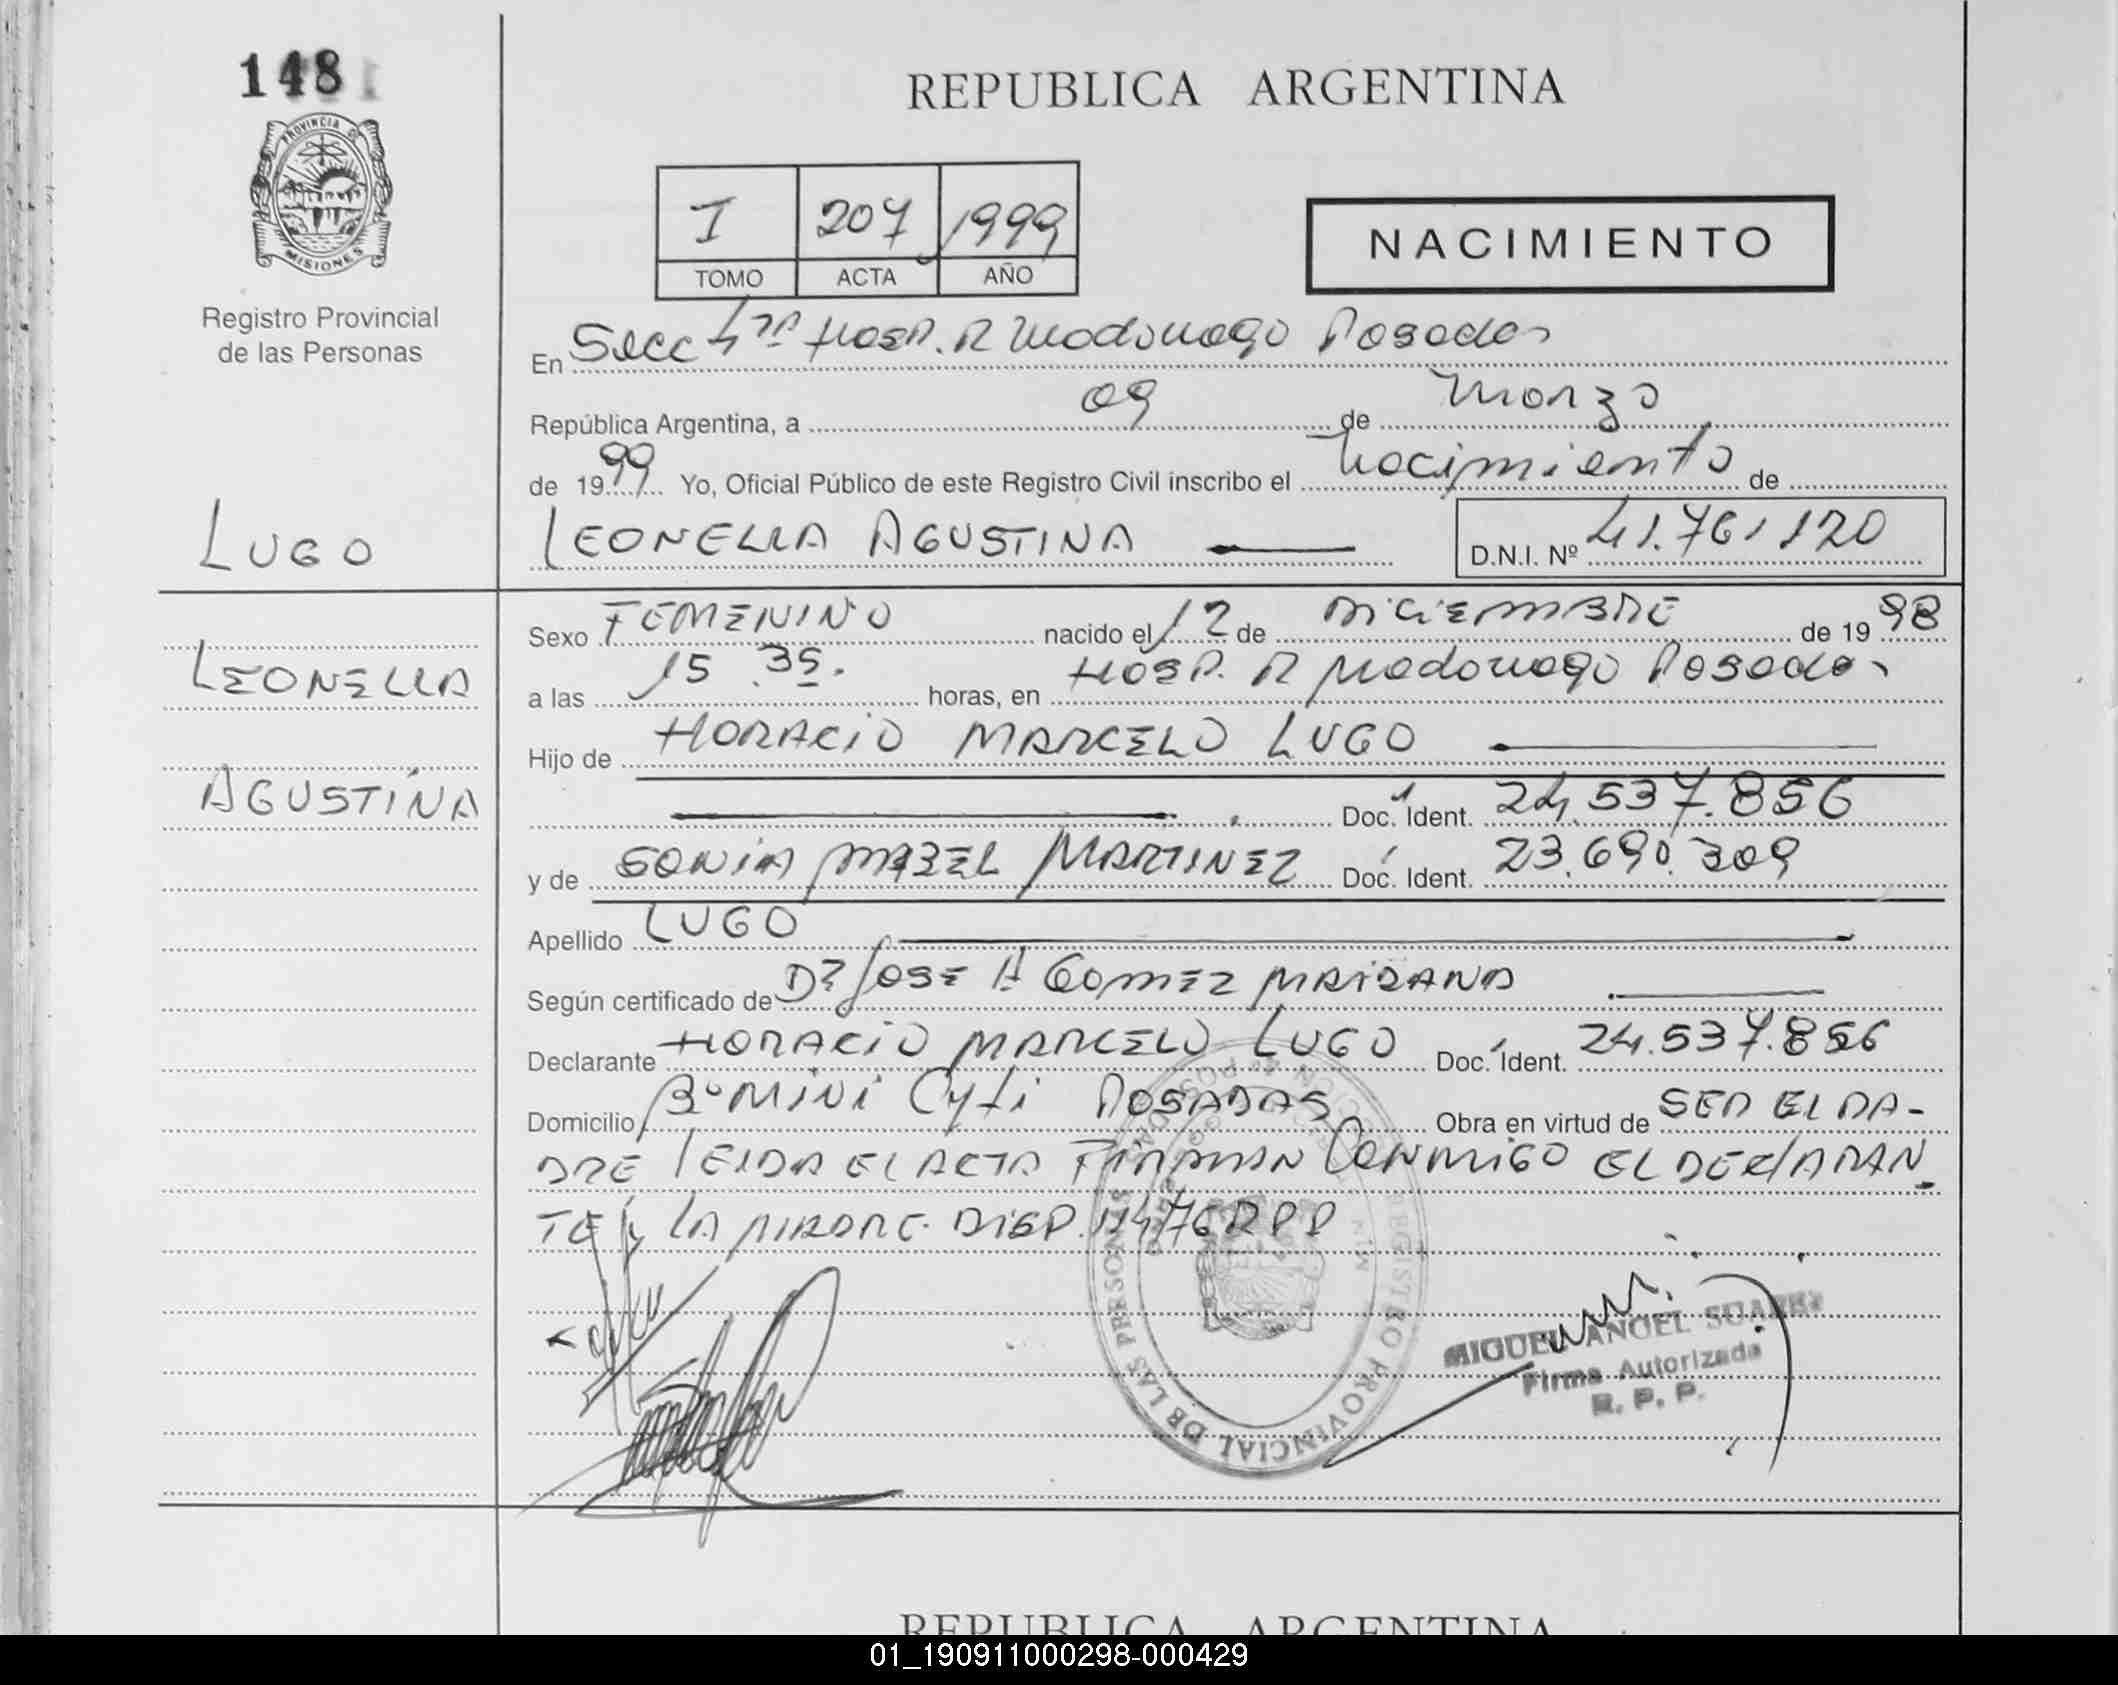 148
REPUBLICA ARGENTINA
PROVINCIA DE
MISIONES
Registro Provincial
de las Personas
I 207 1999
TOMO ACTA AÑO
NACIMIENTO
En Secc 4ta Hosp. R Madariaga Posadas
República Argentina, a 09 de Marzo
de 1999 Yo, Oficial Público de este Registro Civil inscribo el Nacimiento de
LUGO
LEONELLA AGUSTINA
D.N.I. Nº 41.761.120
LEONELLA
AGUSTINA
Sexo FEMENINO nacido el 12 de DICIEMBRE de 19 98
a las 15 35. horas, en HOSP. R Madariaga Posadas
Hijo de HORACIO MARCELO LUGO
Doc. Ident. 24.537.856
y de SONIA MABEL MARTINEZ Doc. Ident. 23.690.309
Apellido LUGO
Según certificado de Dr JOSE A GOMEZ
Declarante HORACIO MARCELO LUGO Doc. Ident. 24.537.856
Domicilio Bo MINI City POSADAS Obra en virtud de SER EL PA-
DRE LEIDA EL ACTA FIRMAN CONMIGO EL DECLARAN-
TE Y LA MADRE. DISP. RPP
REGISTRO PROVINCIAL DE LAS PERSONAS
MIGUEL ANGEL SUAREZ
Firma Autorizada
R. P. P.
REPUBLICA ARGENTINA
01_190911000298-000429